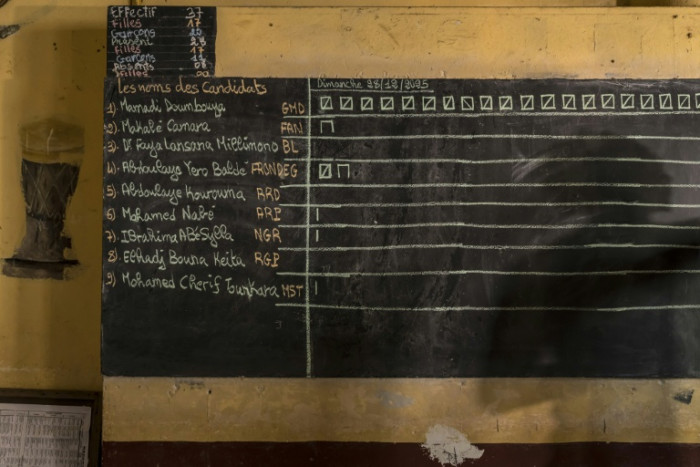 Effectif 37
Filles 17
Garçons 20
Présent
Filles 17
Garçons
Absents
Filles
Les noms des Candidats
Dimanche 28/12/2025
1) Mamadi Doumbouya GMD
2) Mahalé Camara FAN
3) Dr Faya Lansana Millimono BL
4) Abdoulaye Yero Baldé FRONDEG
5) Abdoulaye Kourouma RRD
6) Mohamed Nabé ARP
7) IBrahima ABé Sylla NGR
8) Elhadj Bouna Keita RGP
9) Mohamed Cherif Tunkara MST